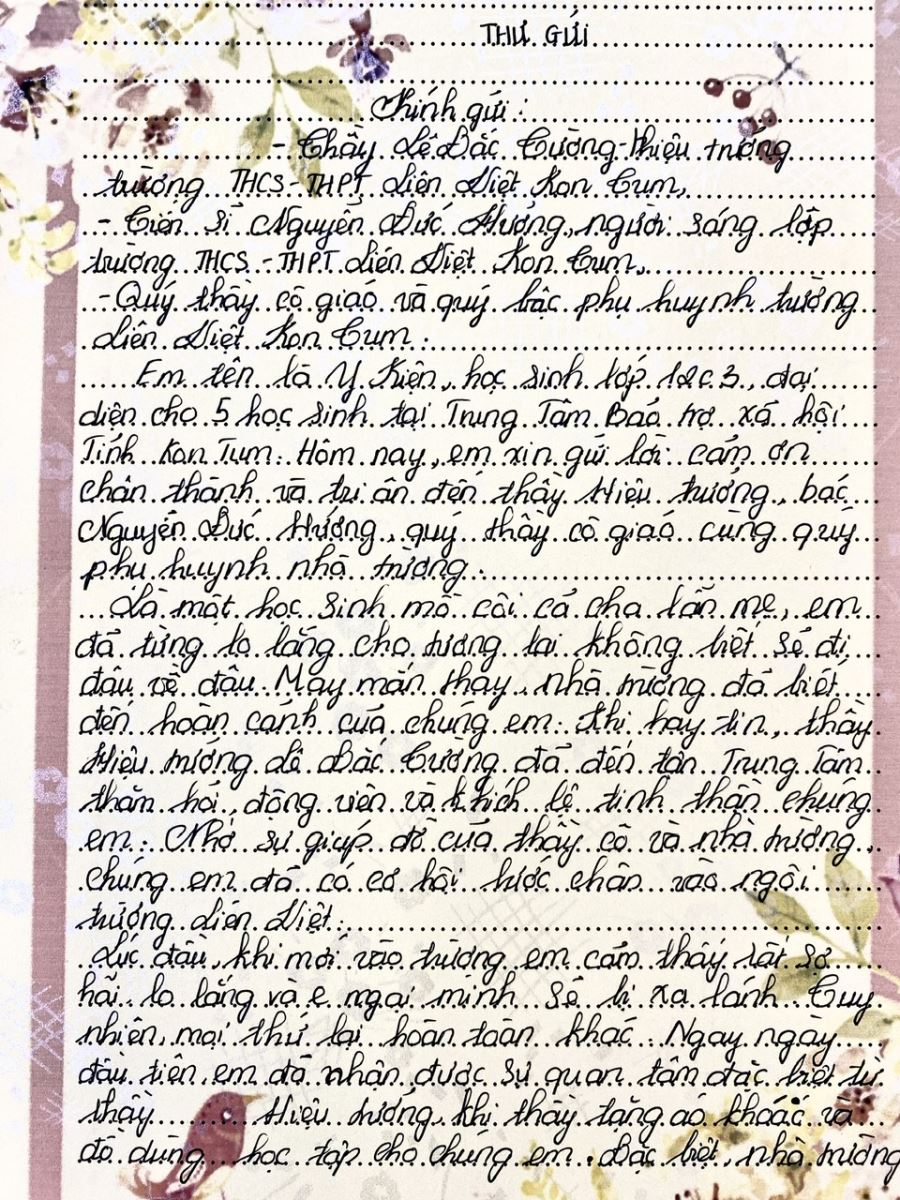 THƯ GỬI
Kính gửi:
- Thầy Lê Đắc Cường - Hiệu trưởng
trường THCS - THPT Liên Việt Kon Tum,
- Tiến sĩ Nguyễn Đức Hưởng, người sáng lập
trường THCS - THPT Liên Việt Kon Tum,
- Quý thầy cô giáo và quý bậc phụ huynh trường
Liên Việt Kon Tum.
Em tên là Y Kiện, học sinh lớp 12c3, đại
diện cho 5 học sinh tại Trung Tâm Bảo trợ xã hội
Tỉnh Kon Tum. Hôm nay, em xin gửi lời cảm ơn
chân thành và tri ân đến thầy Hiệu trưởng, bác
Nguyễn Đức Hưởng, quý thầy cô giáo cùng quý
phụ huynh nhà trường.
Là một học sinh mồ côi cả cha lẫn mẹ, em
đã từng lo lắng cho tương lai không biết sẽ đi
đâu về đâu. May mắn thay, nhà trường đã biết
đến hoàn cảnh của chúng em. Khi hay tin, thầy
Hiệu trưởng Lê Đắc Cường đã đến tận Trung Tâm
thăm hỏi, động viên và khích lệ tinh thần chúng
em. Nhờ sự giúp đỡ của thầy cô và nhà trường,
chúng em đã có cơ hội bước chân vào ngôi
trường Liên Việt.
Lúc đầu, khi mới vào trường em cảm thấy rất sợ
hãi, lo lắng và e ngại mình sẽ bị xa lánh. Tuy
nhiên, mọi thứ lại hoàn toàn khác. Ngay ngày
đầu tiên, em đã nhận được sự quan tâm đặc biệt từ
thầy Hiệu trưởng, khi thầy tặng áo khoác và
đồ dùng học tập cho chúng em. Đặc biệt, nhà trường